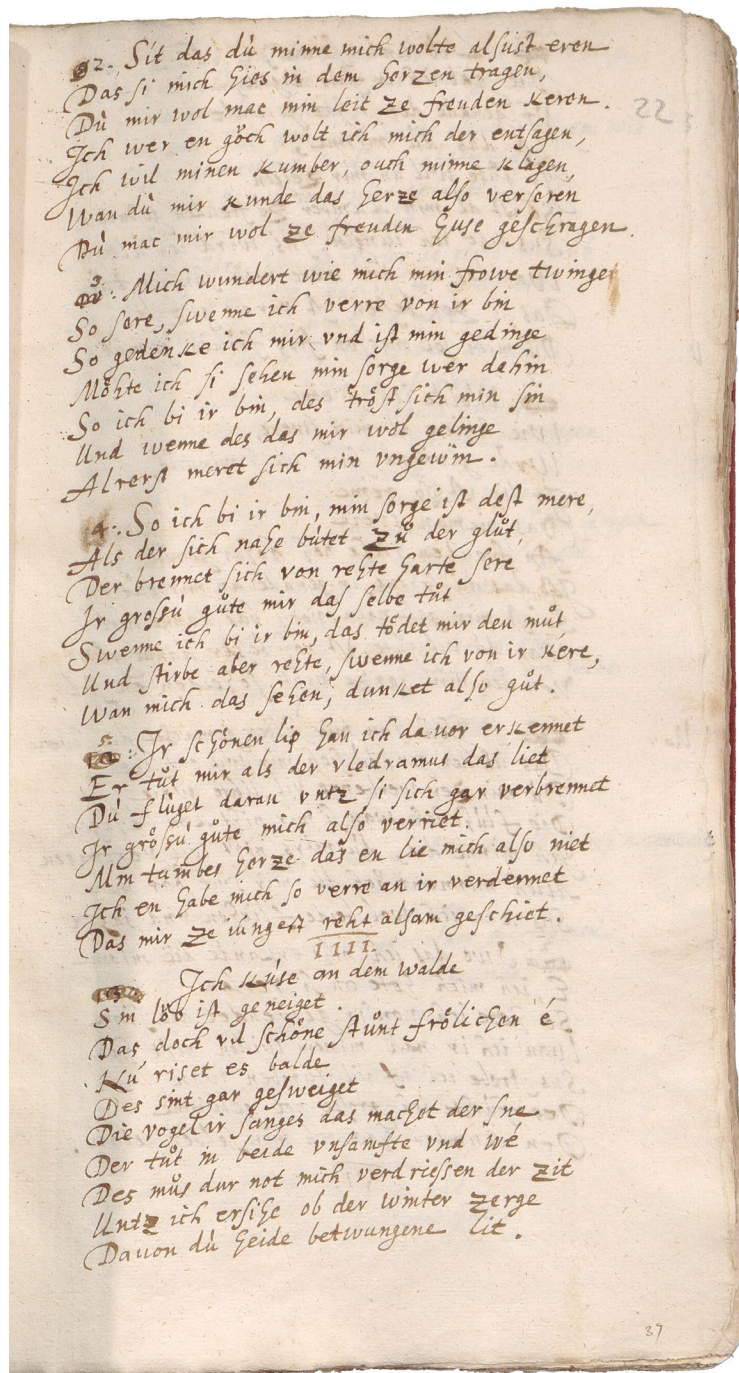 2. Sit das dù minne mich wolte alsust eren
Das si mich hies in dem herzen tragen,
Dù mir wol mac min leit ze freuden keren.
22
Ich wer en göch wolt ich mich der entsagen,
Ich wil minen kumber, ouch minne klagen,
Wan dù mir kunde das herze also verseren
Dù mac mir wol ze freuden huse geschragen.
Mich wundert wie mich min frowe twinge
So sere, swenne ich verre von ir bin
So gedenke ich mir vnd ist min gedinge
Möhte ich si sehen min sorge wer dahin
So ich bi ir bin, des tröst sich min sin
Und wenne des das mir wol gelinge
Alrerst meret sich min vngewin.
4. So ich bi ir bin, min sorge ist dest mere,
Als der sich nahe bùtet zů der glůt,
Der brennet sich von rehte harte sere
Ir grossù gůte mir das selbe tůt
Swenne ich bi ir bin, das tödet mir den můt
Und stirbe aber rehte, swenne ich von ir kere,
Wan mich das sehen, dunket also gůt.
5. Ir schönen lip han ich da vor erkennet
Er tůt mir als der vledramus das liet
Dù flùget daran vntz si sich gar verbrennet
Ir grössù gůte mich also verriet.
Min tumbes herze das en lie mich also niet
Ich en habe mich so verre an ir verdennet
Das mir ze iùngest reht alsam geschiet.
IIII.
Ich kùse an dem walde
Sin löb ist geneiget.
Das doch vil schöne stůnt frölichen é.
Nú riset es balde
Des sint gar gesweiget
Die vogel ir sanges das machet der sne
Der tůt in beide vnsamfte vnd wé
Des můs dur not mich verdriessen der zit
Untz ich ersihe ob der winter zerge
Davon dù heide betwungene lit.
37